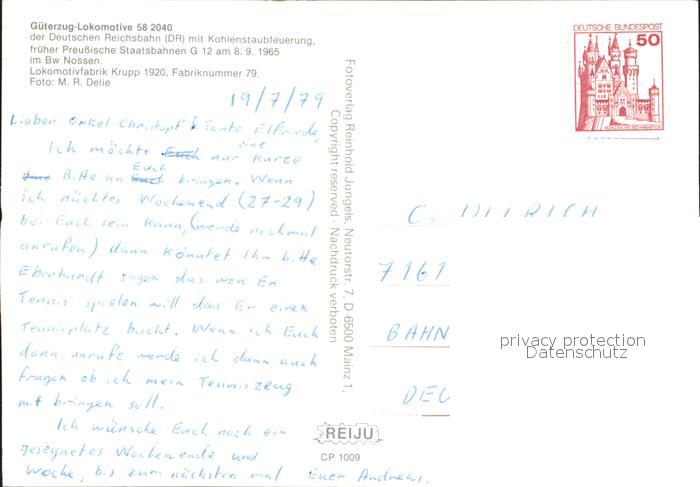 Güterzug-Lokomotive 58 2040
der Deutschen Reichsbahn (DR) mit Kohlenstaubfeuerung,
früher Preußische Staatsbahnen G 12 am 8. 9. 1965
im Bw Nossen.
Lokomotivfabrik Krupp 1920, Fabriknummer 79.
Foto: M. R. Delie
19/7/79
Lieber Onkel Christoph & Tante Elfriede,
Ich möchte Euch nur eine kurze
Bitte an Euch bringen. Wenn
ich nächtes Wochenend (27-29)
bei Euch sein kann, (werde nochmal
anrufen) dann könntet Ihr bitte
Eberhardt sagen das wen Er
Tennis spielen will das Er einen
Tennisplatz bucht. Wenn ich Euch
dann anrufe werde ich dann auch
fragen ob ich mein Tenniszeug
mit bringen soll.
Ich wünsche Euch noch ein
gesegnetes Wochenende und
Woche, bis zum nächsten mal Euer Andrews.
Fotoverlag Reinhold Jungels, Neutorstr. 7, D-6500 Mainz 1,
Copyright reserved · Nachdruck verboten
REIJU
CP 1009
DEUTSCHE BUNDESPOST
50
C. DITTRICH
7161
BAHN
DEU
privacy protection
Datenschutz